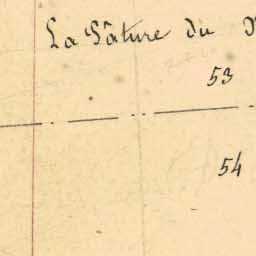 La Pâture du
53
54